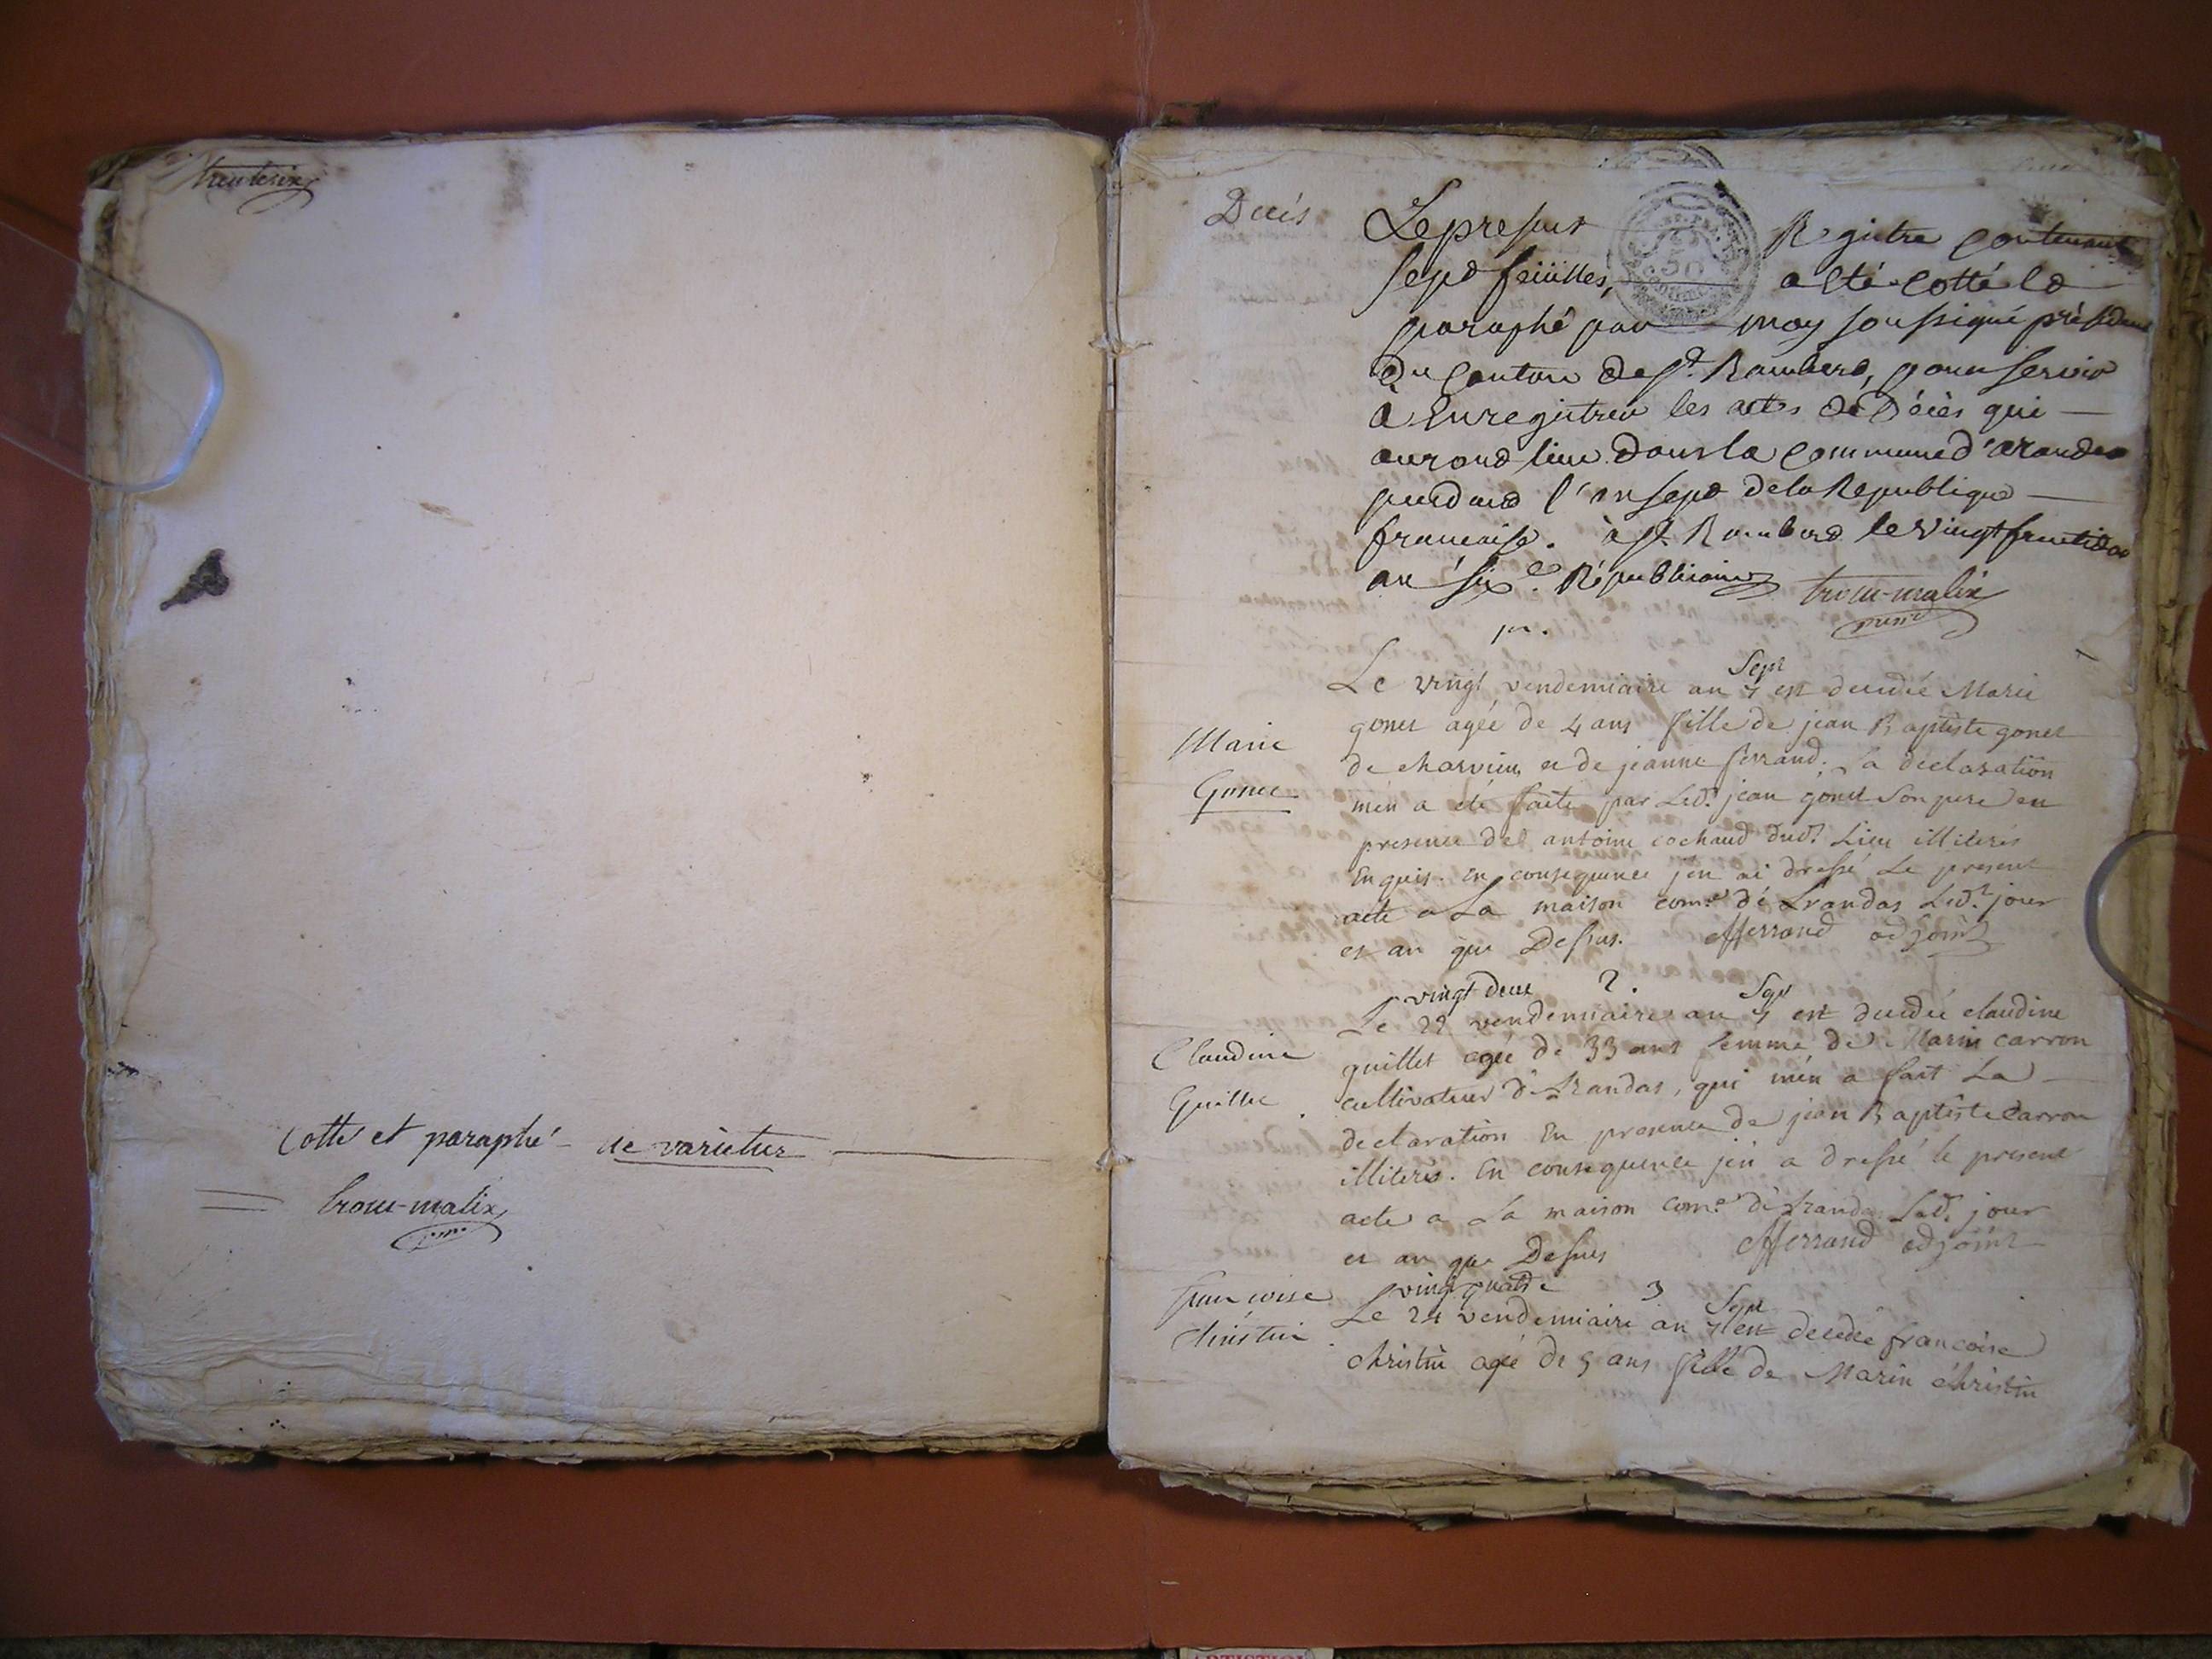 trente six
Cotté et paraphé ne varietur
trocu-malix
Décès
Le present Registre Contenant
sept feüilles, a été Cotté Et
paraphé par moy soussigné président
Du Canton de St. Rambert, pour servir
à Enregistrer les actes de Décès qui
auront lieu dans la Commune d'arandas
pendant l'an sept de la Republique
francaise. à St. Rambert le vingt fructidor
an six.e Républicain
trocu-malix
presit
1er.
Marie
Gonet
Sept
Le vingt vendemiaire an 7 est decedée Marie
gonet agée de 4 ans fille de jean Baptiste gonet
de charvieu et de jeanne ferrand. La declaration
m'en a été faite par Led.t jean gonet Son pere en
presence de antoine cochaud dud.t Lieu illiterés
Enquis. En consequence j'en ai dressé Le present
acte a La maison com.e d'Arandas Led.t jour
et an que Dessus. fferrand adjoint
2.
Claudine
Guillet
vingt deux Sept
Le 22 vendemiaire an 7 est decedée claudine
guillet agée de 33 ans femme de Marin carron
cultivateur d'Arandas, qui m'en a fait La
declaration En presence de jean Baptiste Carron
illiterés. En consequence j'en a dressé le present
acte a La maison com.e d'Arandas Led.t jour
et an que Dessus fferrand adjoint
3
francoise
christin
vingt quatre Sept
Le 24 vendemiaire an 7 est decedée francoise
christin agée de 5 ans fille de Marin christin